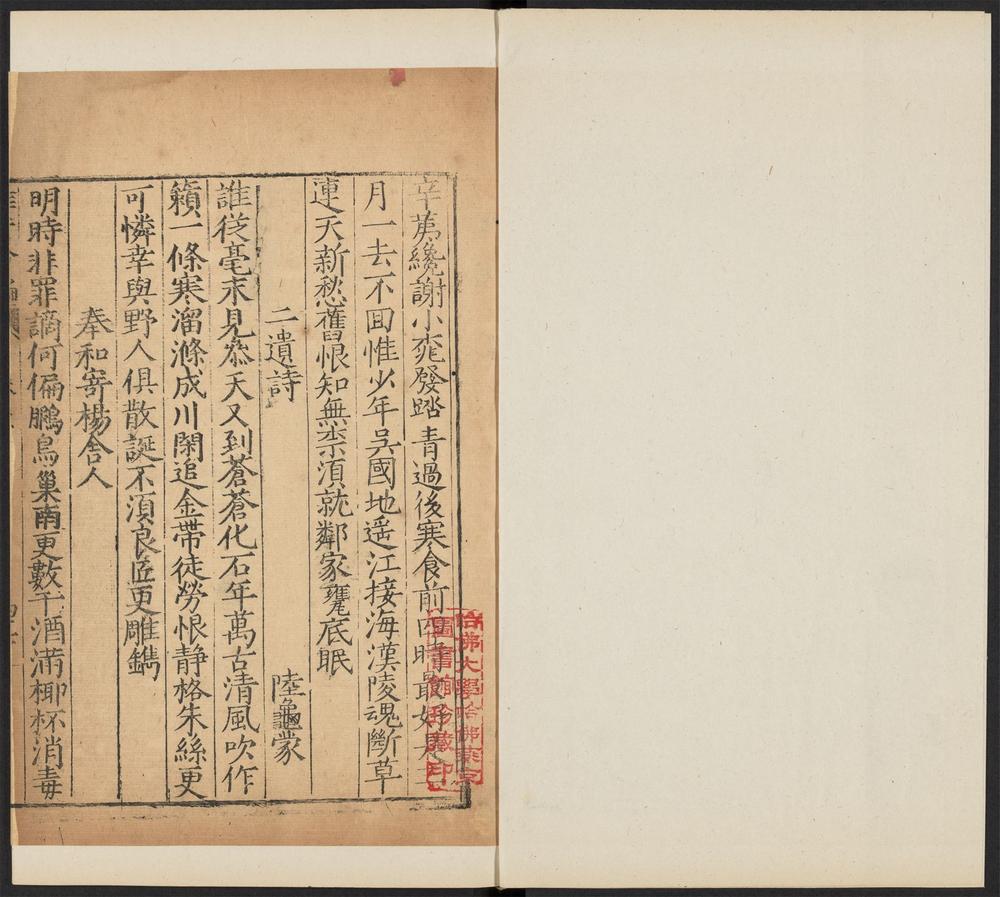 辛荑纔謝小桃發踏青過後寒食前四時最好是三
月一去不囬惟少年吳國地遥江接海漢陵魂斷草
連天新愁舊恨知無柰湏就鄰家甕底眠
二遺詩
陸龜蒙
誰從毫末見叅天又到蒼蒼化石年萬古清風吹作
籟一條寒溜滌成川閑追金帶徒勞恨静格朱絲更
可憐幸與野人俱散誕不湏良匠更雕鐫
奉和寄楊舍人
明時非罪謫何偏鵬鳥巢南更數千酒滿椰杯消毒
哈佛大學哈佛燕京
圖書館珍藏印